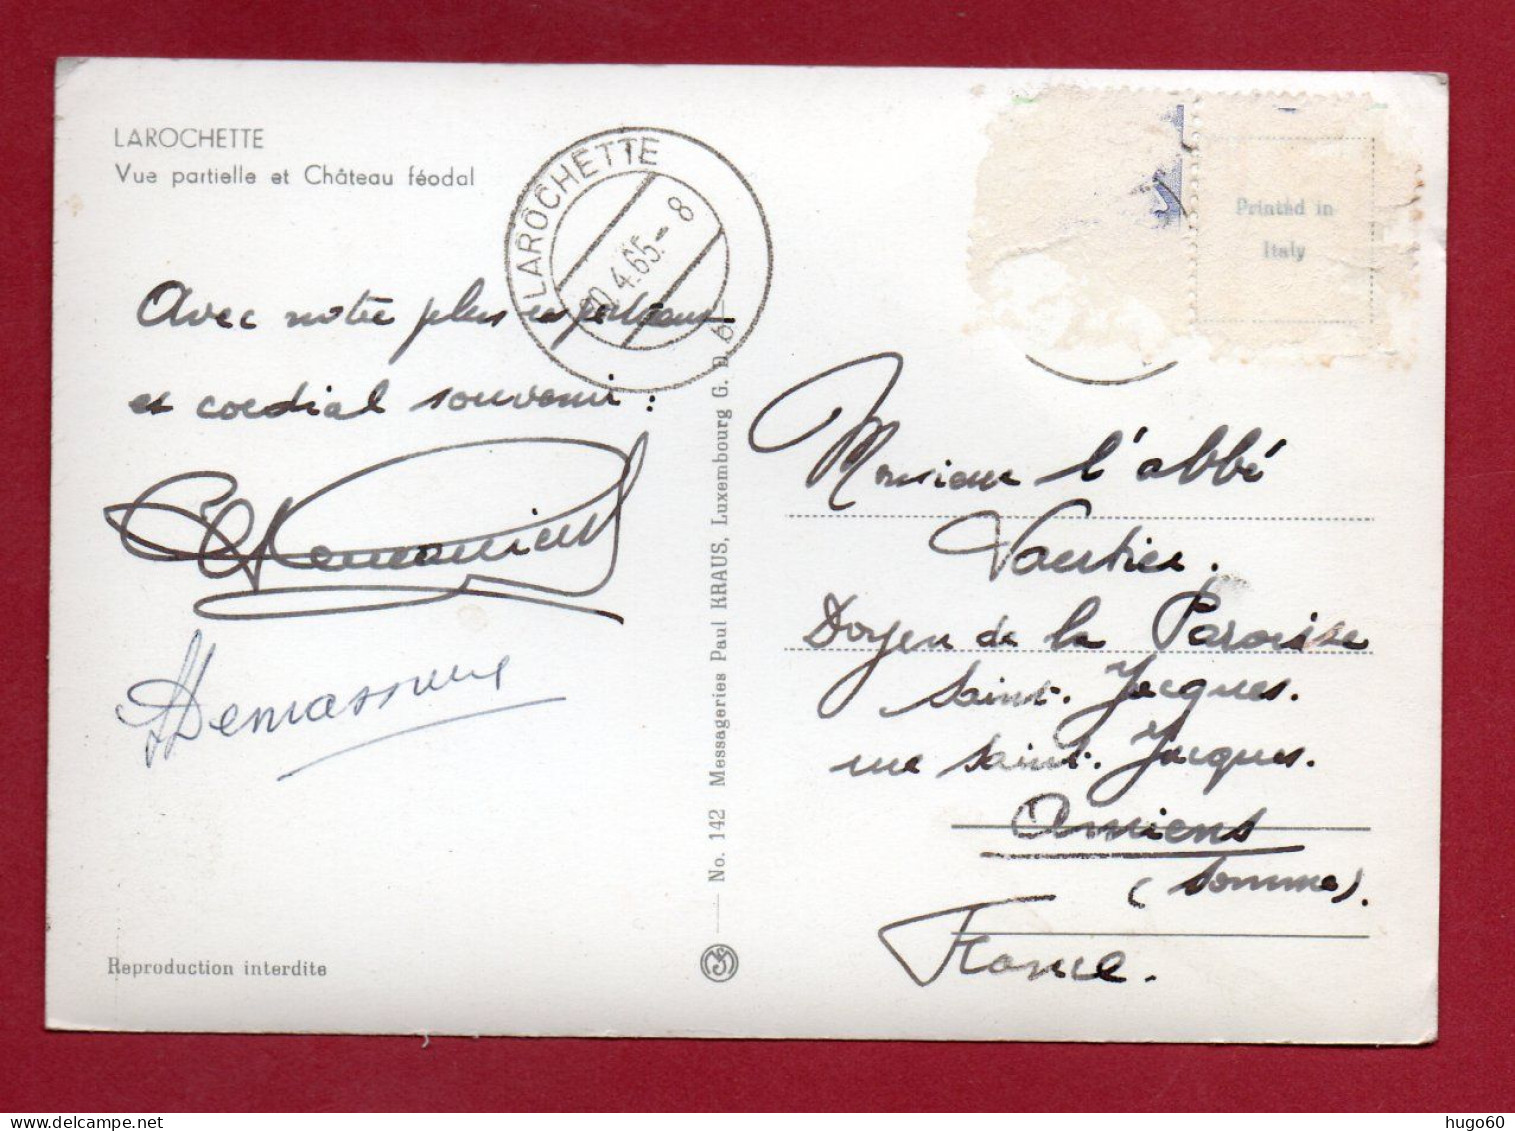 LAROCHETTE
Vue partielle et Château féodal
LAROCHETTE
20.4.65.-8
Printed in
Italy
Avec notre plus respectueux
et cordial souvenir :
Demassieux
Monsieur l'abbé
Vautier.
Doyen de la Paroisse
Saint-Jacques.
rue Saint-Jacques.
Amiens
(Somme).
France.
No. 142 Messageries Paul KRAUS, Luxembourg G. D.
Reproduction interdite
hugo60